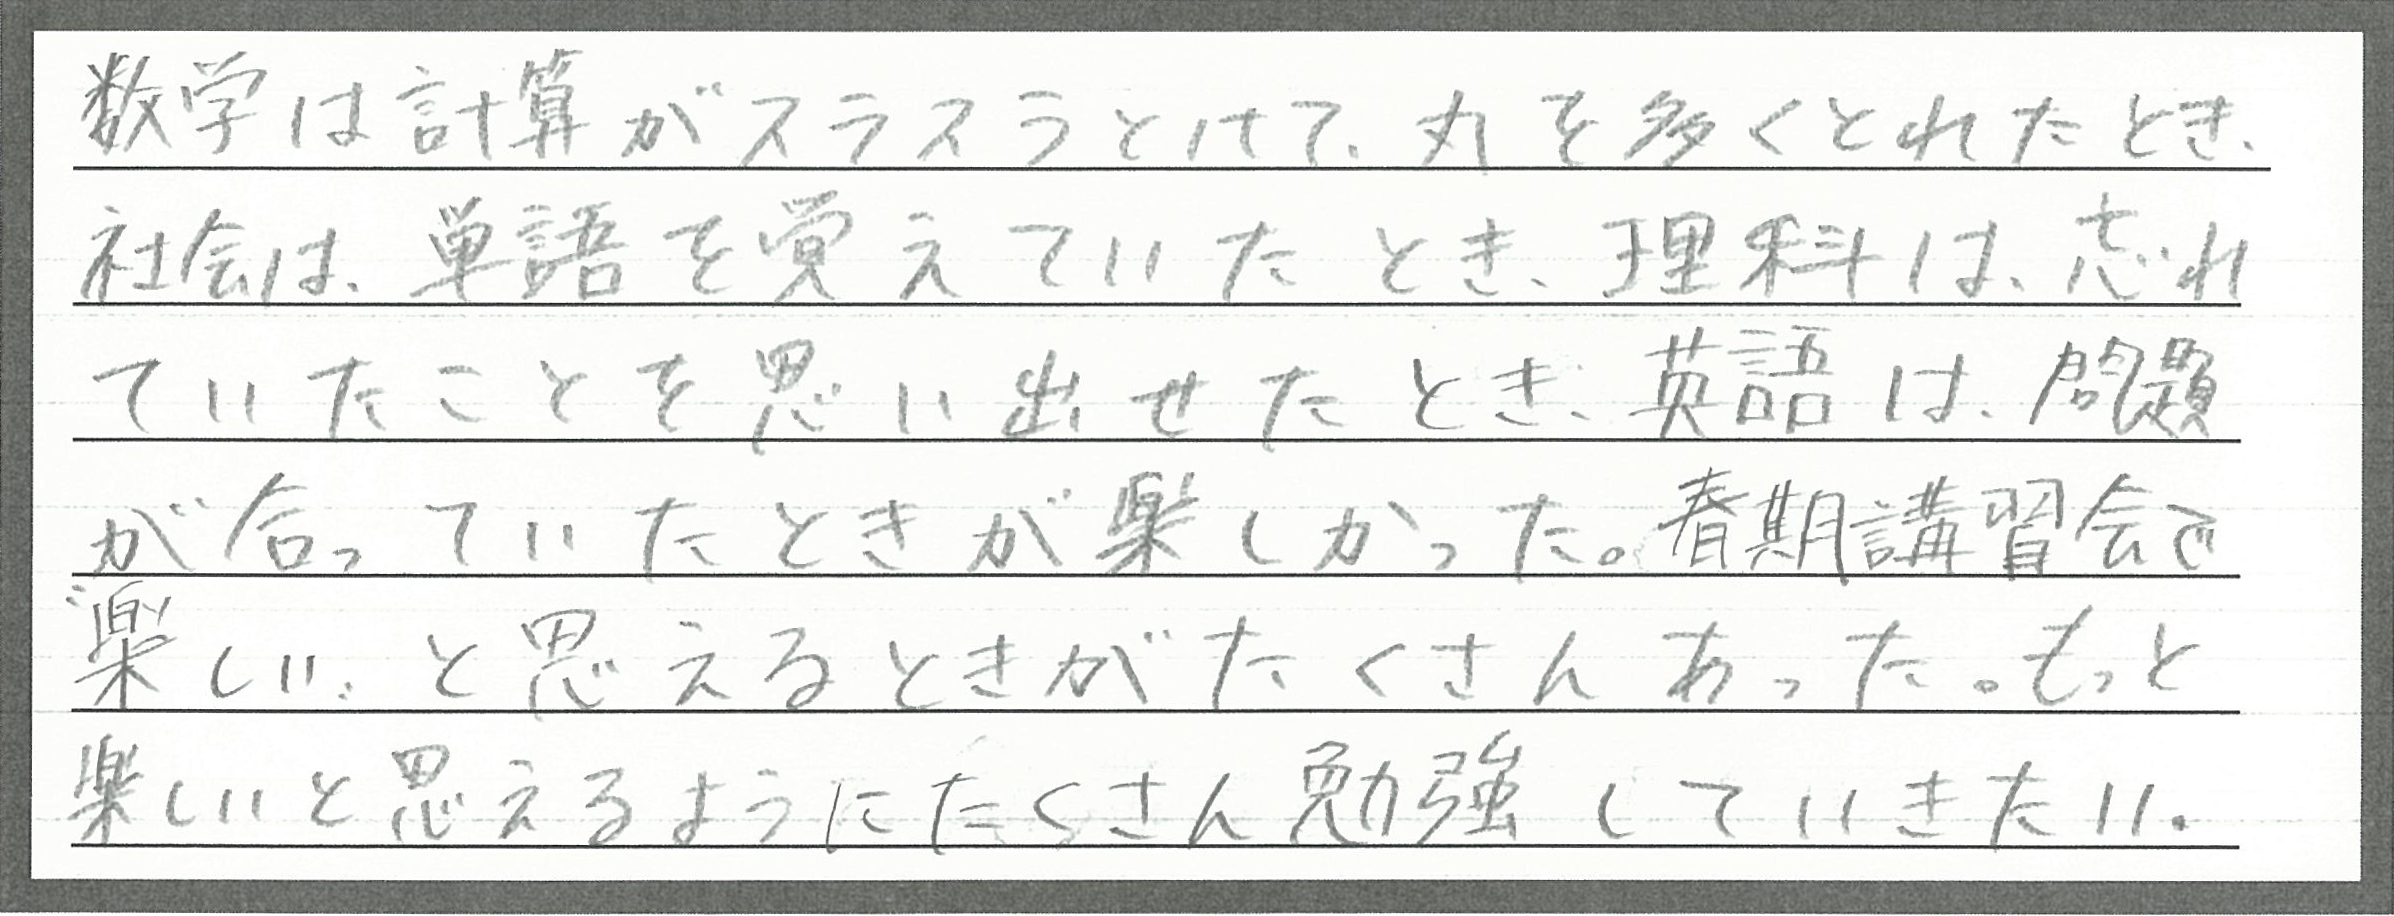 数学は計算がスラスラとけて、丸を多くとれたとき、
社会は、単語を覚えていたとき、理科は、忘れ
ていたことを思い出せたとき、英語は、問題
が合っていたときが楽しかった。春期講習会で
楽しい、と思えるときがたくさんあった。もっと
楽しいと思えるようにたくさん勉強していきたい。